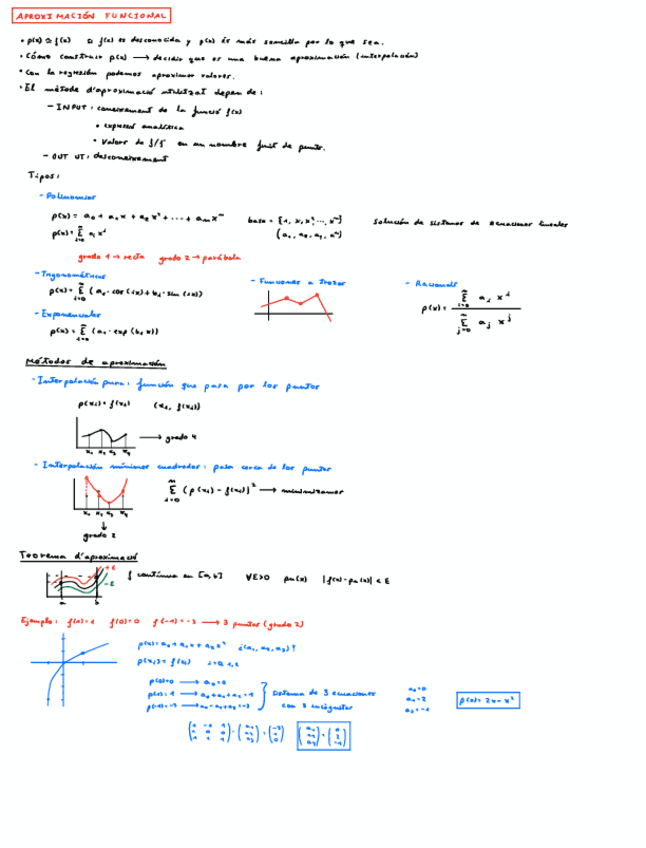 APROXIMACIÓN FUNCIONAL
• p(x) ≃ f(x) si f(x) es desconocida y p(x) es más sencilla por lo que sea.
• Cómo construir p(x) → decidir que es una buena aproximación (interpolación)
• Con la regresión podemos aproximar valores.
• El mètode d'aproximació utilitzat depen de:
- INPUT: coneixement de la funció f(x)
• expresió analítica
• Valors de f/f' en un nombre finit de punts.
- OUT UT: desconeixement
Tipos:
- Polinomios
p(x) = a0 + a1x + a2x² + ··· + amx^m base = {1, x, x², ..., x^m} Solución de sistemas de ecuaciones lineales
p(x) = Σ ai x^i
i=0
grado 1 → recta grado 2 → parábola
- Trigonométricas - Funciones a trozos - Racionals
p(x) = Σ (ai · cos (ix) + bi · sin (ix))
- Exponenciales
p(x) = Σ (ai · exp (bi x))
Métodos de aproximación
- Interpolación pura: función que pasa por los puntos
p(xi) = f(xi) (xi, f(xi))
→ grado 4
- Interpolación mínimos cuadrados: pasa cerca de los puntos
Σ (p(xi) - f(xi))² → minimizamos
grado 2
Teorema d'aproximació
+E
-E
f contínua en [a,b] ∀E>0 pn(x) |f(x) - pn(x)| < E
a b
Ejemplo: f(1)=1 f(0)=0 f(-1)=-3 → 3 puntos (grado 2)
p(xi) = f(xi) i=0,1,2
p(0)=0 → a0=0
p(1)=1 → a0+a1+a2=1 Sistema de 3 ecuaciones
p(-1)=-3 → a0-a1+a2=-3 con 3 incógnitas
a0=0
a1=2
a2=-1
p(x) = 2x - x²